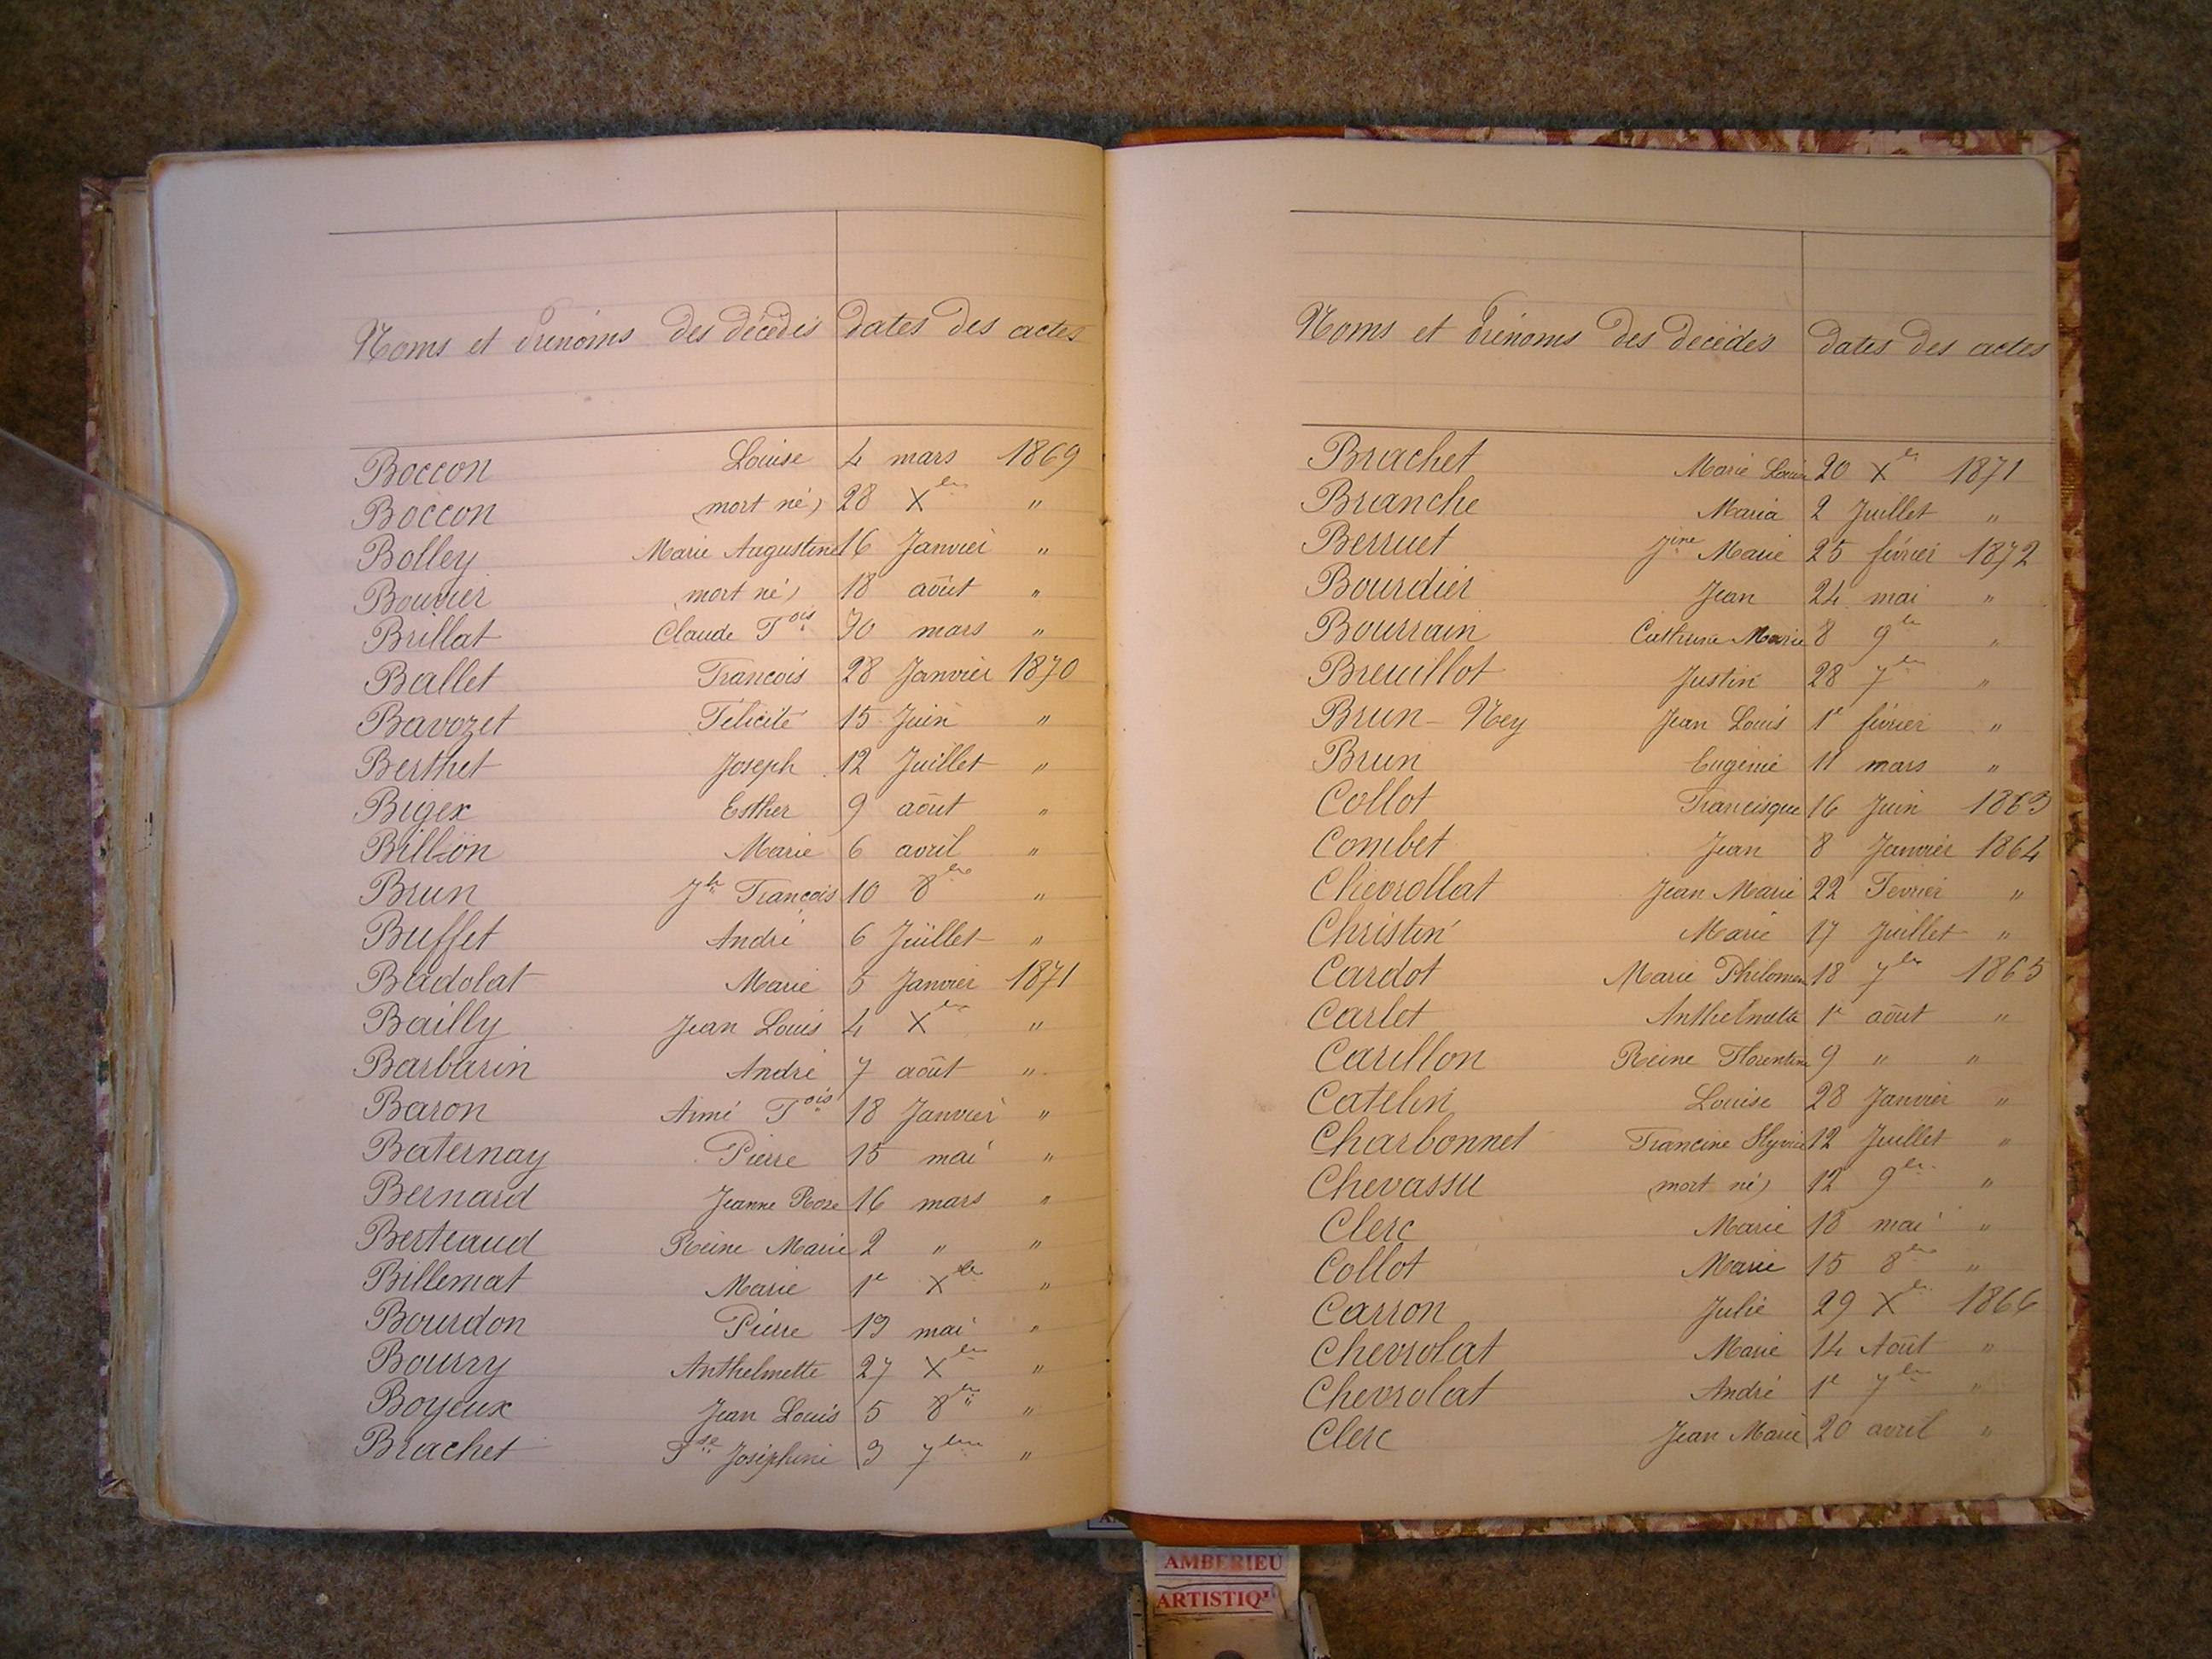 Noms et prénoms des décédés dates des actes
Boccon Louise 4 mars 1869
Boccon (mort né) 28 Xbre "
Bolley Marie Augustine 16 Janvier "
Bouvier (mort né) 18 août "
Brillat Claude Fois 30 mars "
Ballet Francois 28 Janvier 1870
Bavozet Félicité 15 Juin "
Berthet Joseph 12 Juillet "
Bigex Esther 9 août "
Billon Marie 6 avril "
Brun Jh Francois 10 8bre "
Buffet André 6 Juillet "
Badolat Marie 5 Janvier 1871
Bailly Jean Louis 4 Xbre "
Barbarin André 7 août "
Baron Aimé Fois 18 Janvier "
Baternay Pierre 15 mai "
Bernard Jeanne Rose 16 mars "
Berteaud Reine Marie 2 " "
Billemat Marie 1e Xbre "
Bourdon Pierre 19 mai "
Bourry Anthelmette 27 Xbre "
Boyeux Jean Louis 5 8bre "
Brachet Joséphine 3 7bre "
Noms et Prénoms des décédés dates des actes
Brachet Marie Louise 20 Xbre 1871
Branche Maria 2 Juillet "
Berruet Jine Marie 25 février 1872
Bourdier Jean 24 mai "
Bourrain Catherine Marie 8 9bre "
Breuillot Justin 28 7bre "
Brun-Ney Jean Louis 1e février "
Brun Eugénie 11 mars "
Collot Francisque 16 Juin 1863
Combet Jean 8 Janvier 1864
Chevrollat Jean Marie 22 Fevrier "
Christin Marie 17 Juillet "
Cardot Marie Philomen 18 7bre 1865
Carlet Anthelmette 1e août "
Carillon Reine Florentine 9 " "
Catelin Louise 28 Janvier "
Charbonnet Francine 12 Juillet "
Chevassu (mort né) 12 9bre "
Clerc Marie 18 mai "
Collot Marie 15 8bre "
Carron Julie 29 Xbre 1866
Chevrolat Marie 14 Août "
Chevrolat André 1e 7bre "
Clerc Jean Marie 20 avril "
AMBERIEU
ARTISTIQU